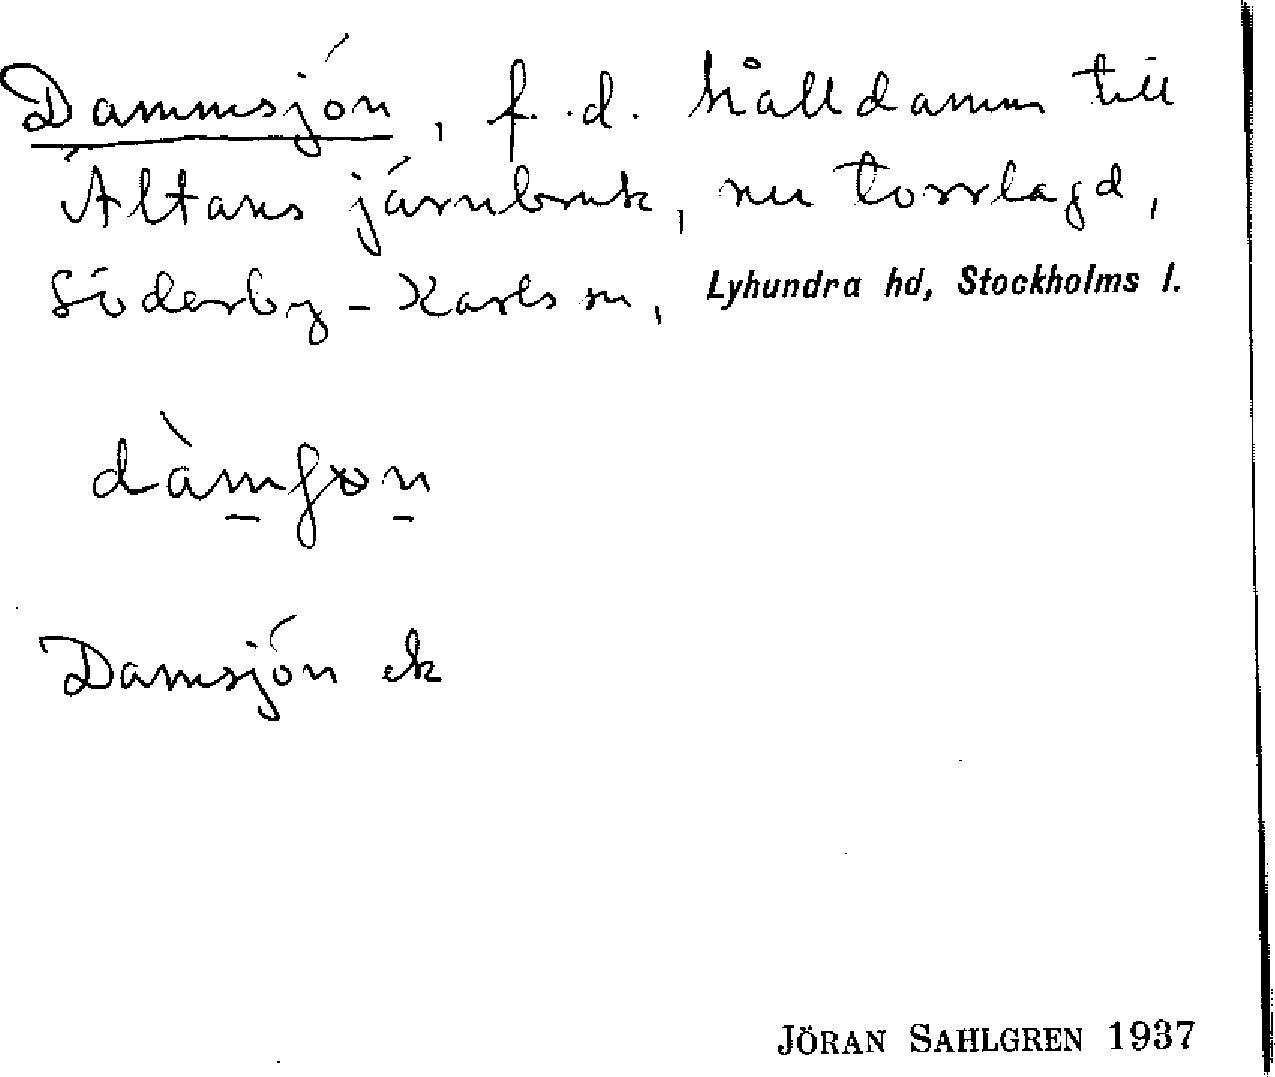 Dammsjön, f. d. hålldamm till
Ältans järnbruk, nu torrlagd,
Söderby-Karls sn, Lyhundra hd, Stockholms l.
Damsjön ek
JÖRAN SAHLGREN 1937